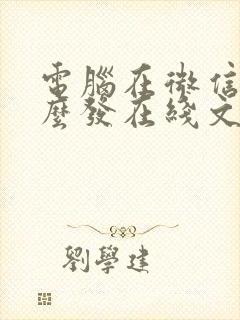 電腦在微信
麼發在綫文
劉學建